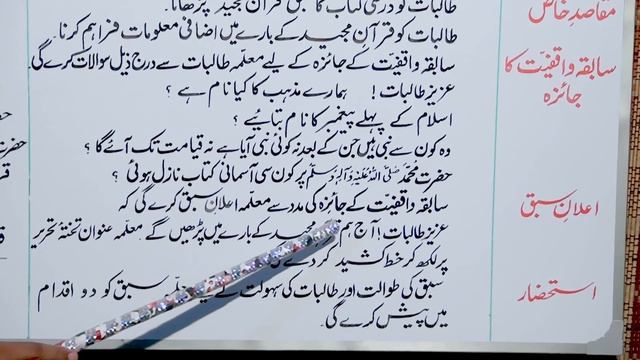 مقاصدِ خاص
طالبات کو درسی کتاب کا سبق قرآن مجید پڑھانا۔
طالبات کو قرآنِ مجید کے بارے میں اضافی معلومات فراہم کرنا۔
سابقہ واقفیّت کا جائزہ
سابقہ واقفیت کے جائزہ کے لیے معلّمہ طالبات سے درج ذیل سوالات کرے گی۔
عزیز طالبات! ہمارے مذہب کا کیا نام ہے ؟
اسلام کے پہلے پیغمبر کا نام بتائیے ؟
وہ کون سے نبی ہیں جن کے بعد نہ کوئی نبی آیا ہے نہ قیامت تک آئے گا ؟
حضرت محمّد صلی اللہ علیہ وآلہ وسلم پر کون سی آسمانی کتاب نازل ہوئی ؟
اعلانِ سبق
سابقہ واقفیت کے جائزہ کی مدد سے معلمہ اعلانِ سبق کرے گی کہ
عزیز طالبات! آج ہم مجید کے بارے میں پڑھیں گے معلمہ عنوان تختۂ تحریر
پر لکھ کر خط کشید کر دے
استحضار
سبق کی طوالت اور طالبات کی سہولت کے لیے سبق کو دو اقدام
میں پیش کرے گی۔
حضرت